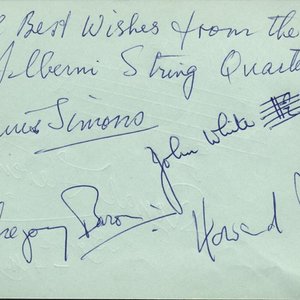 Best Wishes from the
Alberni String Quarte
Simons
John White
Gregory Baron
Howard